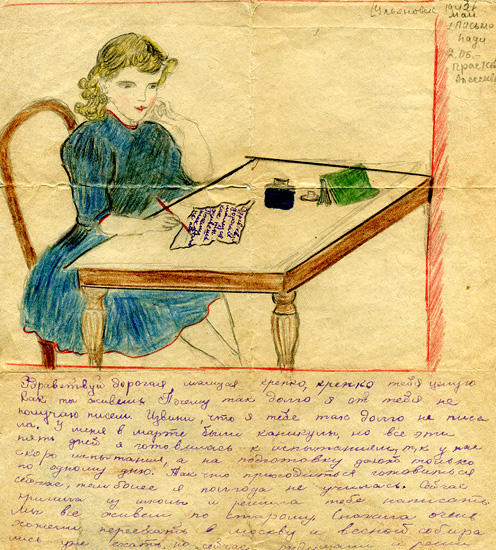 Ульяновск
1942г
май
Письмо
Нади
2.05.-
Здравствуй дорогая мамуся крепко, крепко тебя целую
Как ты живешь. Почему так долго я от тебя не
получаю писем Извини, что я тебе так долго не писа
ла. У меня в марте были каникулы, но все эти
пять дней я готовилась к испытаниям, т,к у нас
скоро испытания, а на подготовку дают только
по одному дню. Так что приходиться готовится
сейчас, тем более я полгода не училась. Сейчас
пришла из школы и решила тебе написать.
Мы все живем по старому. Сначала очень
хотели переехать в москву и весной собира
лись уже ехать, но сейчас